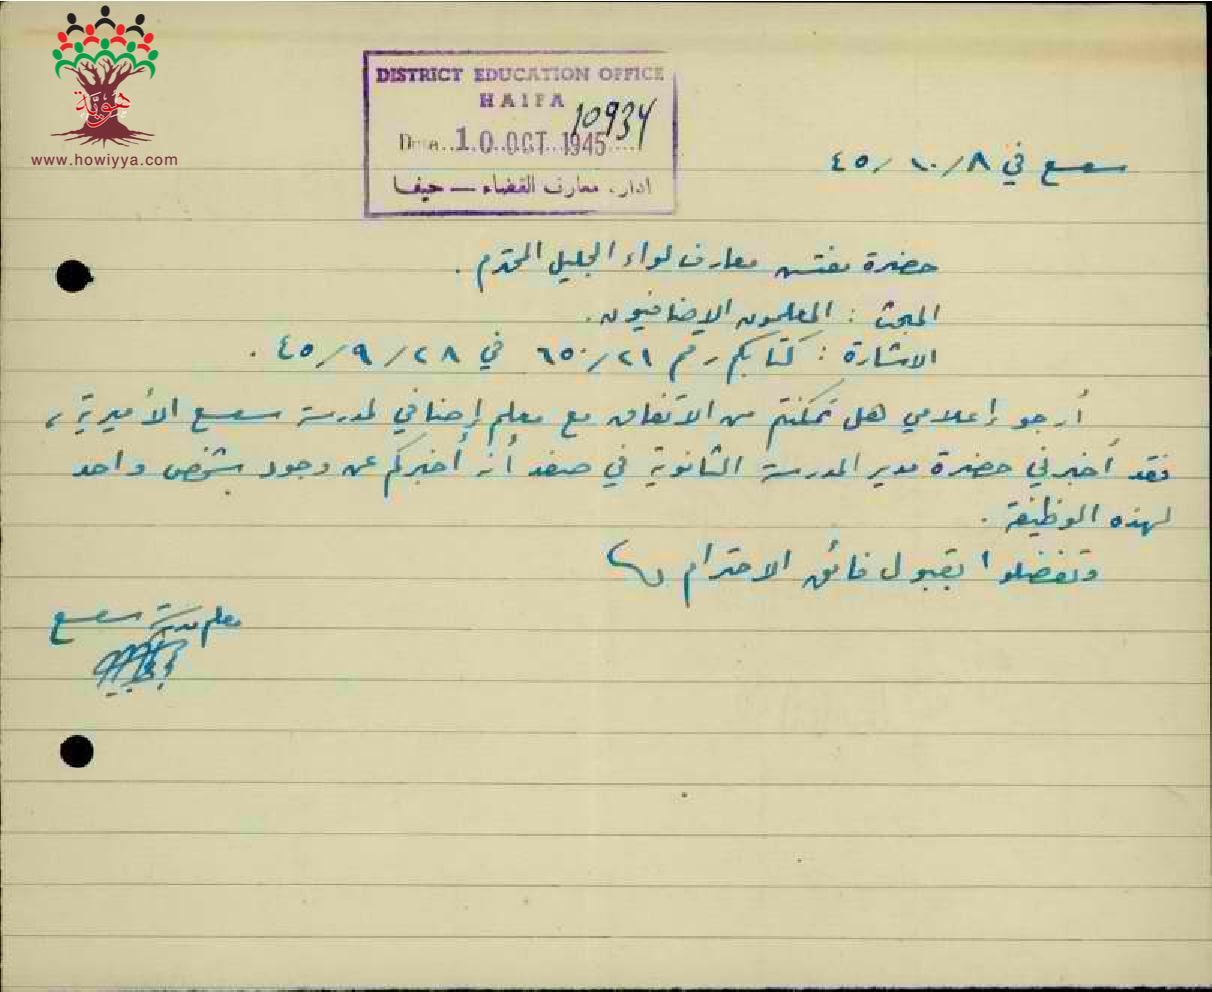 هوية
www.howiyya.com
DISTRICT EDUCATION OFFICE
HAIFA
10934
Date..10 OCT 1945....
ادارة معارف القضاء — حيفا
سعسع في ٨/١٠/٤٥
حضرة مفتش معارف لواء الجليل المحترم .
المبحث : المعلمون الإضافيون .
الاشارة : كتابكم رقم ٦٥٠/٢١ في ٢٨/٩/٤٥ .
أرجو إعلامي هل تمكنتم من الاتفاق مع معلم إضافي لمدرسة سعسع الأميرية ،
فقد أخبرني حضرة مدير المدرسة الثانوية في صفد أنه أخبركم عن وجود شخص واحد
لهذه الوظيفة .
وتفضلوا بقبول فائق الاحترام
معلم مدرسة سعسع